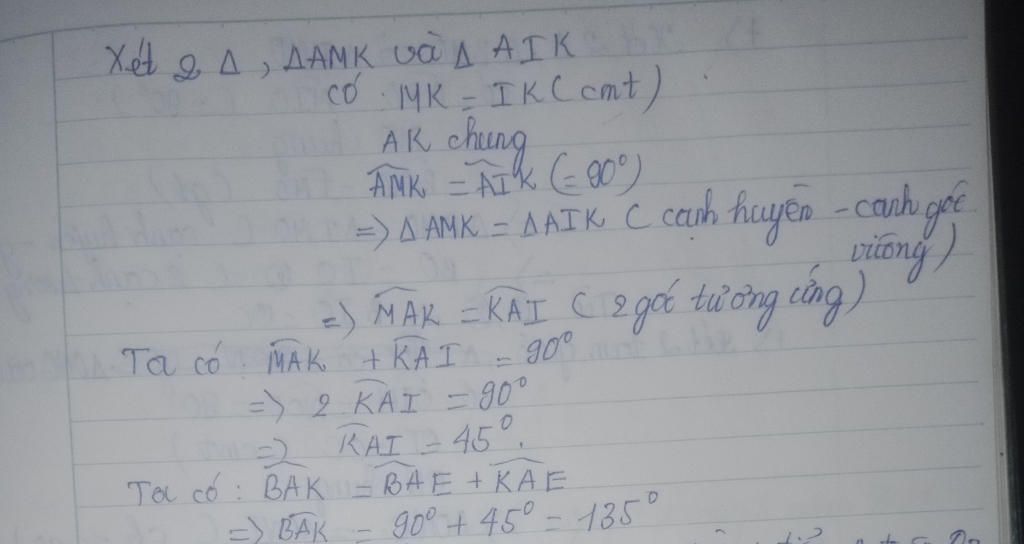 Xét 2 Δ, ΔAMK và Δ AIK
có MK = IK (cmt)
AK chung
\widehat{AMK} = \widehat{AIK} (= 90°)
=> ΔAMK = ΔAIK ( cạnh huyền - cạnh góc
vuông)
=> \widehat{MAK} = \widehat{KAI} ( 2 góc tương ứng)
Ta có : \widehat{MAK} + \widehat{KAI} = 90°
=> 2 \widehat{KAI} = 90°
=> \widehat{KAI} = 45°.
Ta có : \widehat{BAK} = \widehat{BAE} + \widehat{KAE}
=> \widehat{BAK} = 90° + 45° = 135°